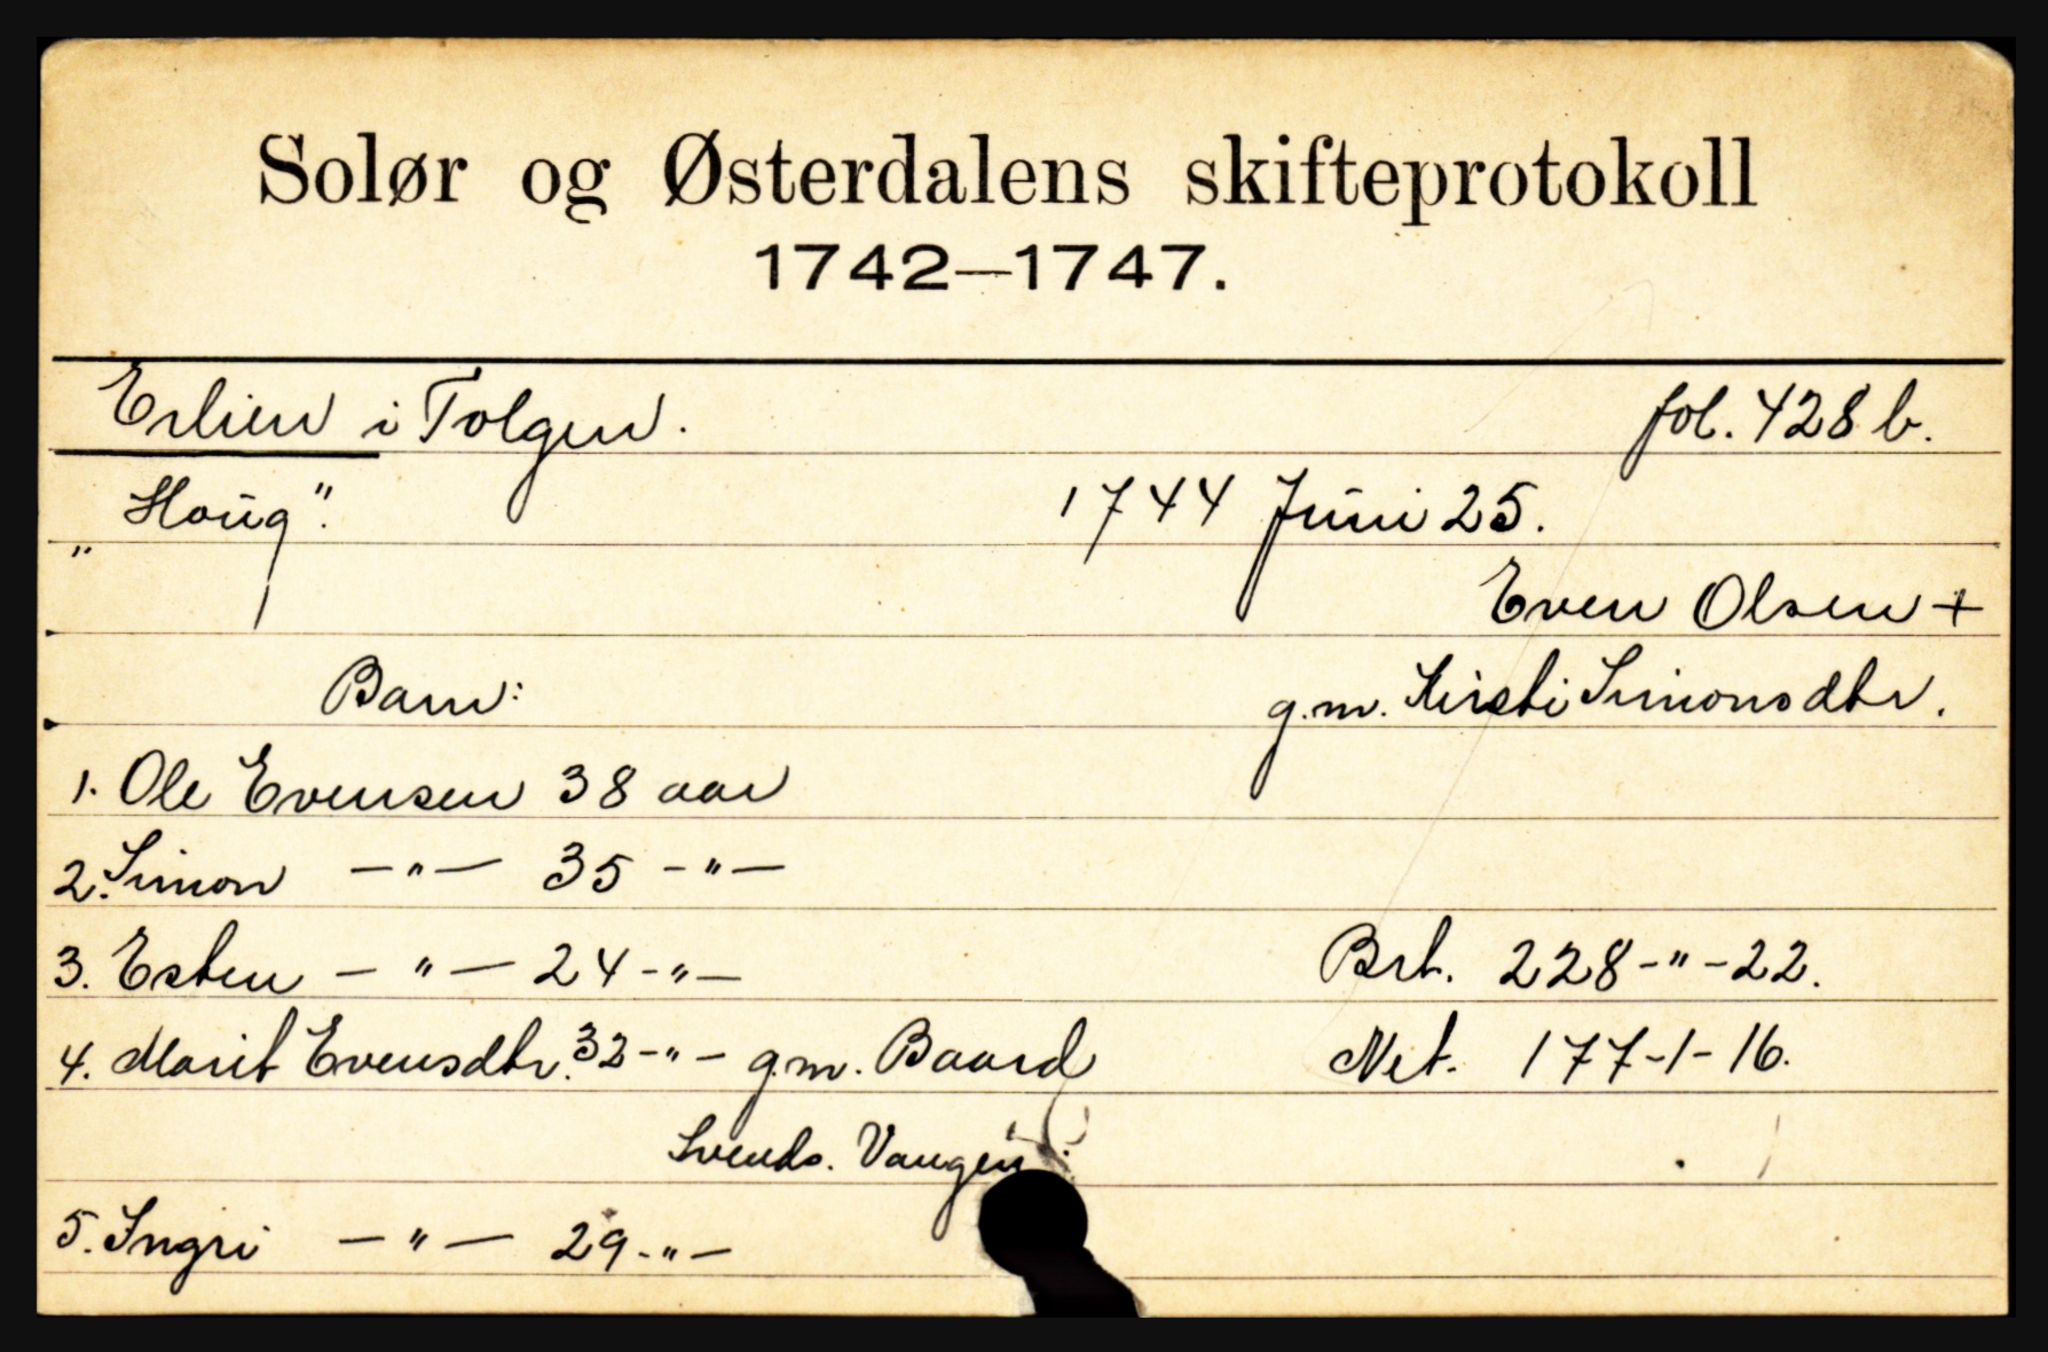 Solør og Østerdalens skifteprotokoll
1742—1747.
Erlien i Tolgen. fol. 428 b.
„Houg". 1744 Juni 25.
Even Olsen +
Barn: g.m. Kirsti Simonsdtr.
1. Ole Evensen 38 aar
2. Simon —"— 35 —"—
3. Esten —"— 24 -"- Brt. 228-"-22.
4. Marit Evensdtr. 32 -"- g.m. Baard Net. 177-1-16.
Svends. Vangen.
5. Ingri —"— 29 -"-